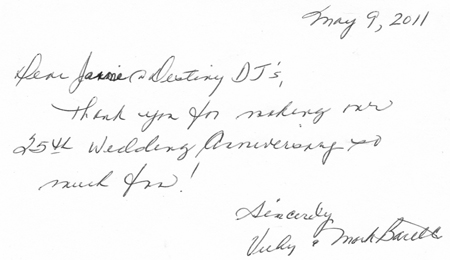 May 9, 2011
Dear Jamie & Destiny DJ's,
Thank you for making our
25th Wedding Anniversary so
much fun!
Sincerely
Vicky & Mark